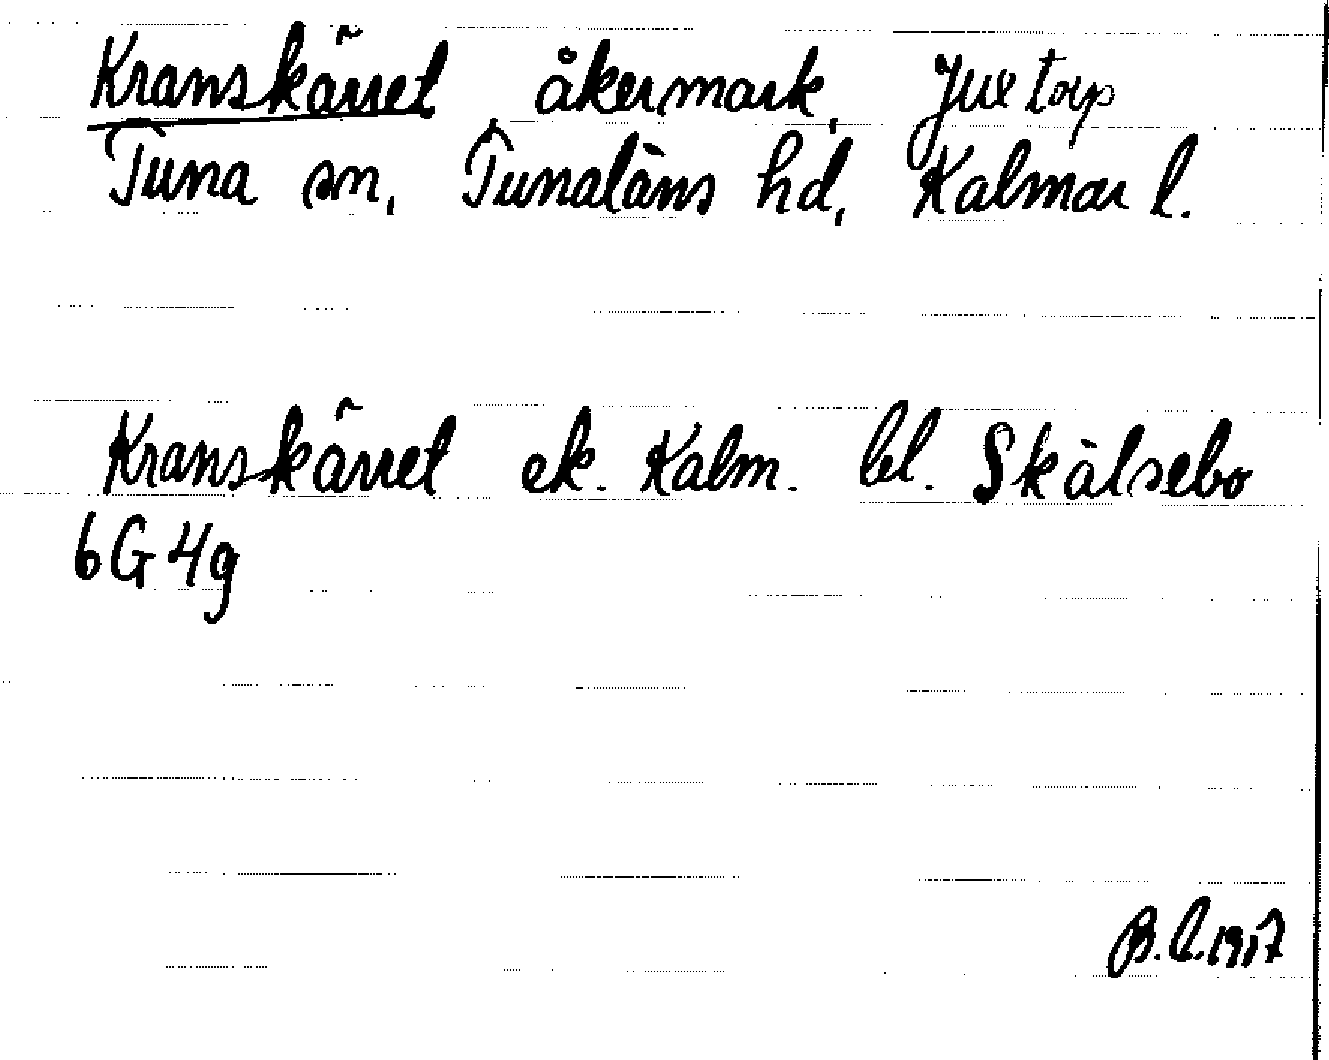 Kranskärret åkermark, Juxtorp
Tuna sn, Tunaläns hd, Kalmar l.
Kranskärret ek. Kalm. bl. Skälsebo
6G4g